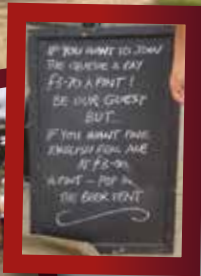 IF YOU WANT TO JOIN
THE QUEUE & PAY
£3-70 A PINT!
BE OUR GUEST
BUT...
IF YOU WANT FINE
ENGLISH REAL ALE
AT £3-00
A PINT - POP IN
THE BEER TENT